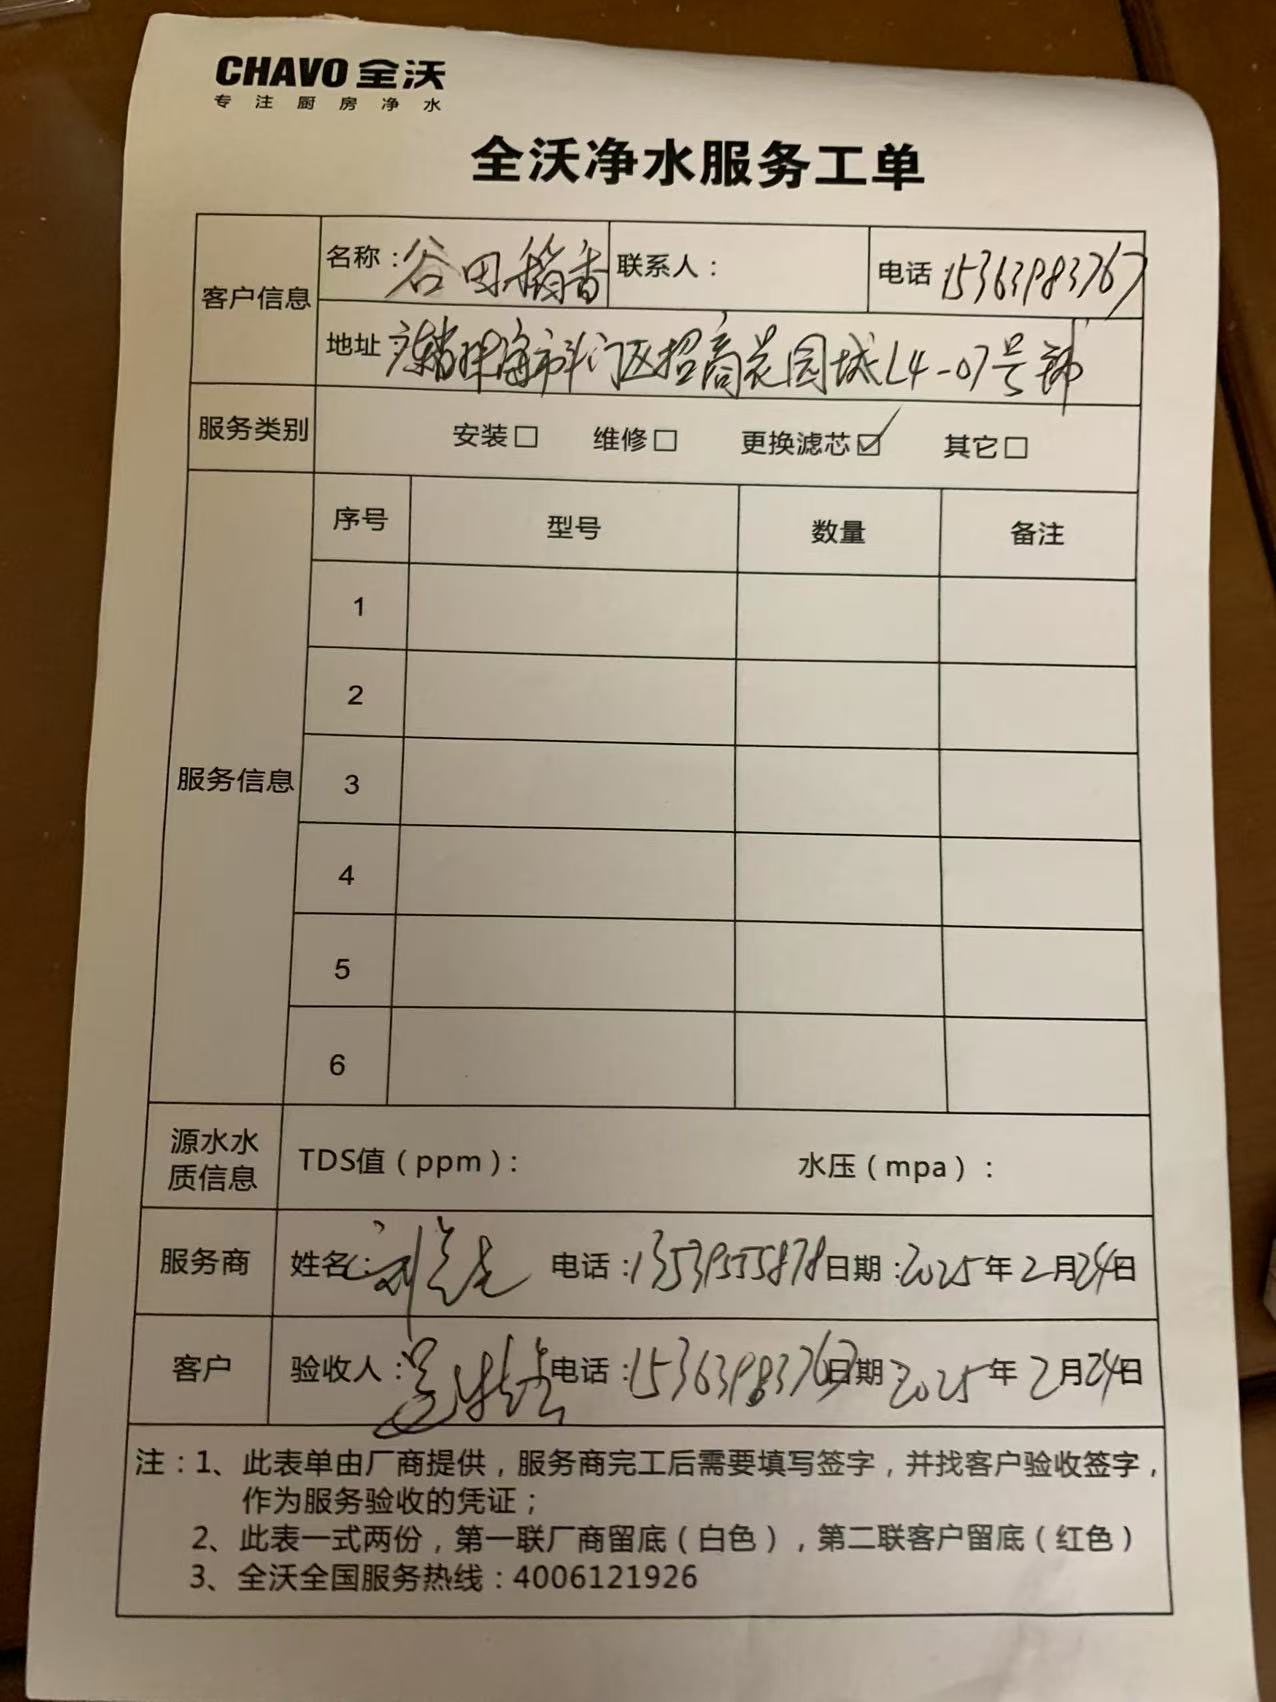 CHAVO 全沃
专注厨房净水
全沃净水服务工单
客户信息 名称：谷田稻香 联系人： 电话 15363983767
地址：广东省珠海市斗门区招商花园城L4-07号铺
服务类别 安装□ 维修□ 更换滤芯☑ 其它□
服务信息 序号 型号 数量 备注
1
2
3
4
5
6
源水水质信息 TDS值（ppm）： 水压（mpa）：
服务商 姓名： 电话：日期：2025年2月24日
客户 验收人： 电话：15363983767日期 2025年2月24日
注：1、此表单由厂商提供，服务商完工后需要填写签字，并找客户验收签字，
作为服务验收的凭证；
2、此表一式两份，第一联厂商留底（白色），第二联客户留底（红色）
3、全沃全国服务热线：4006121926